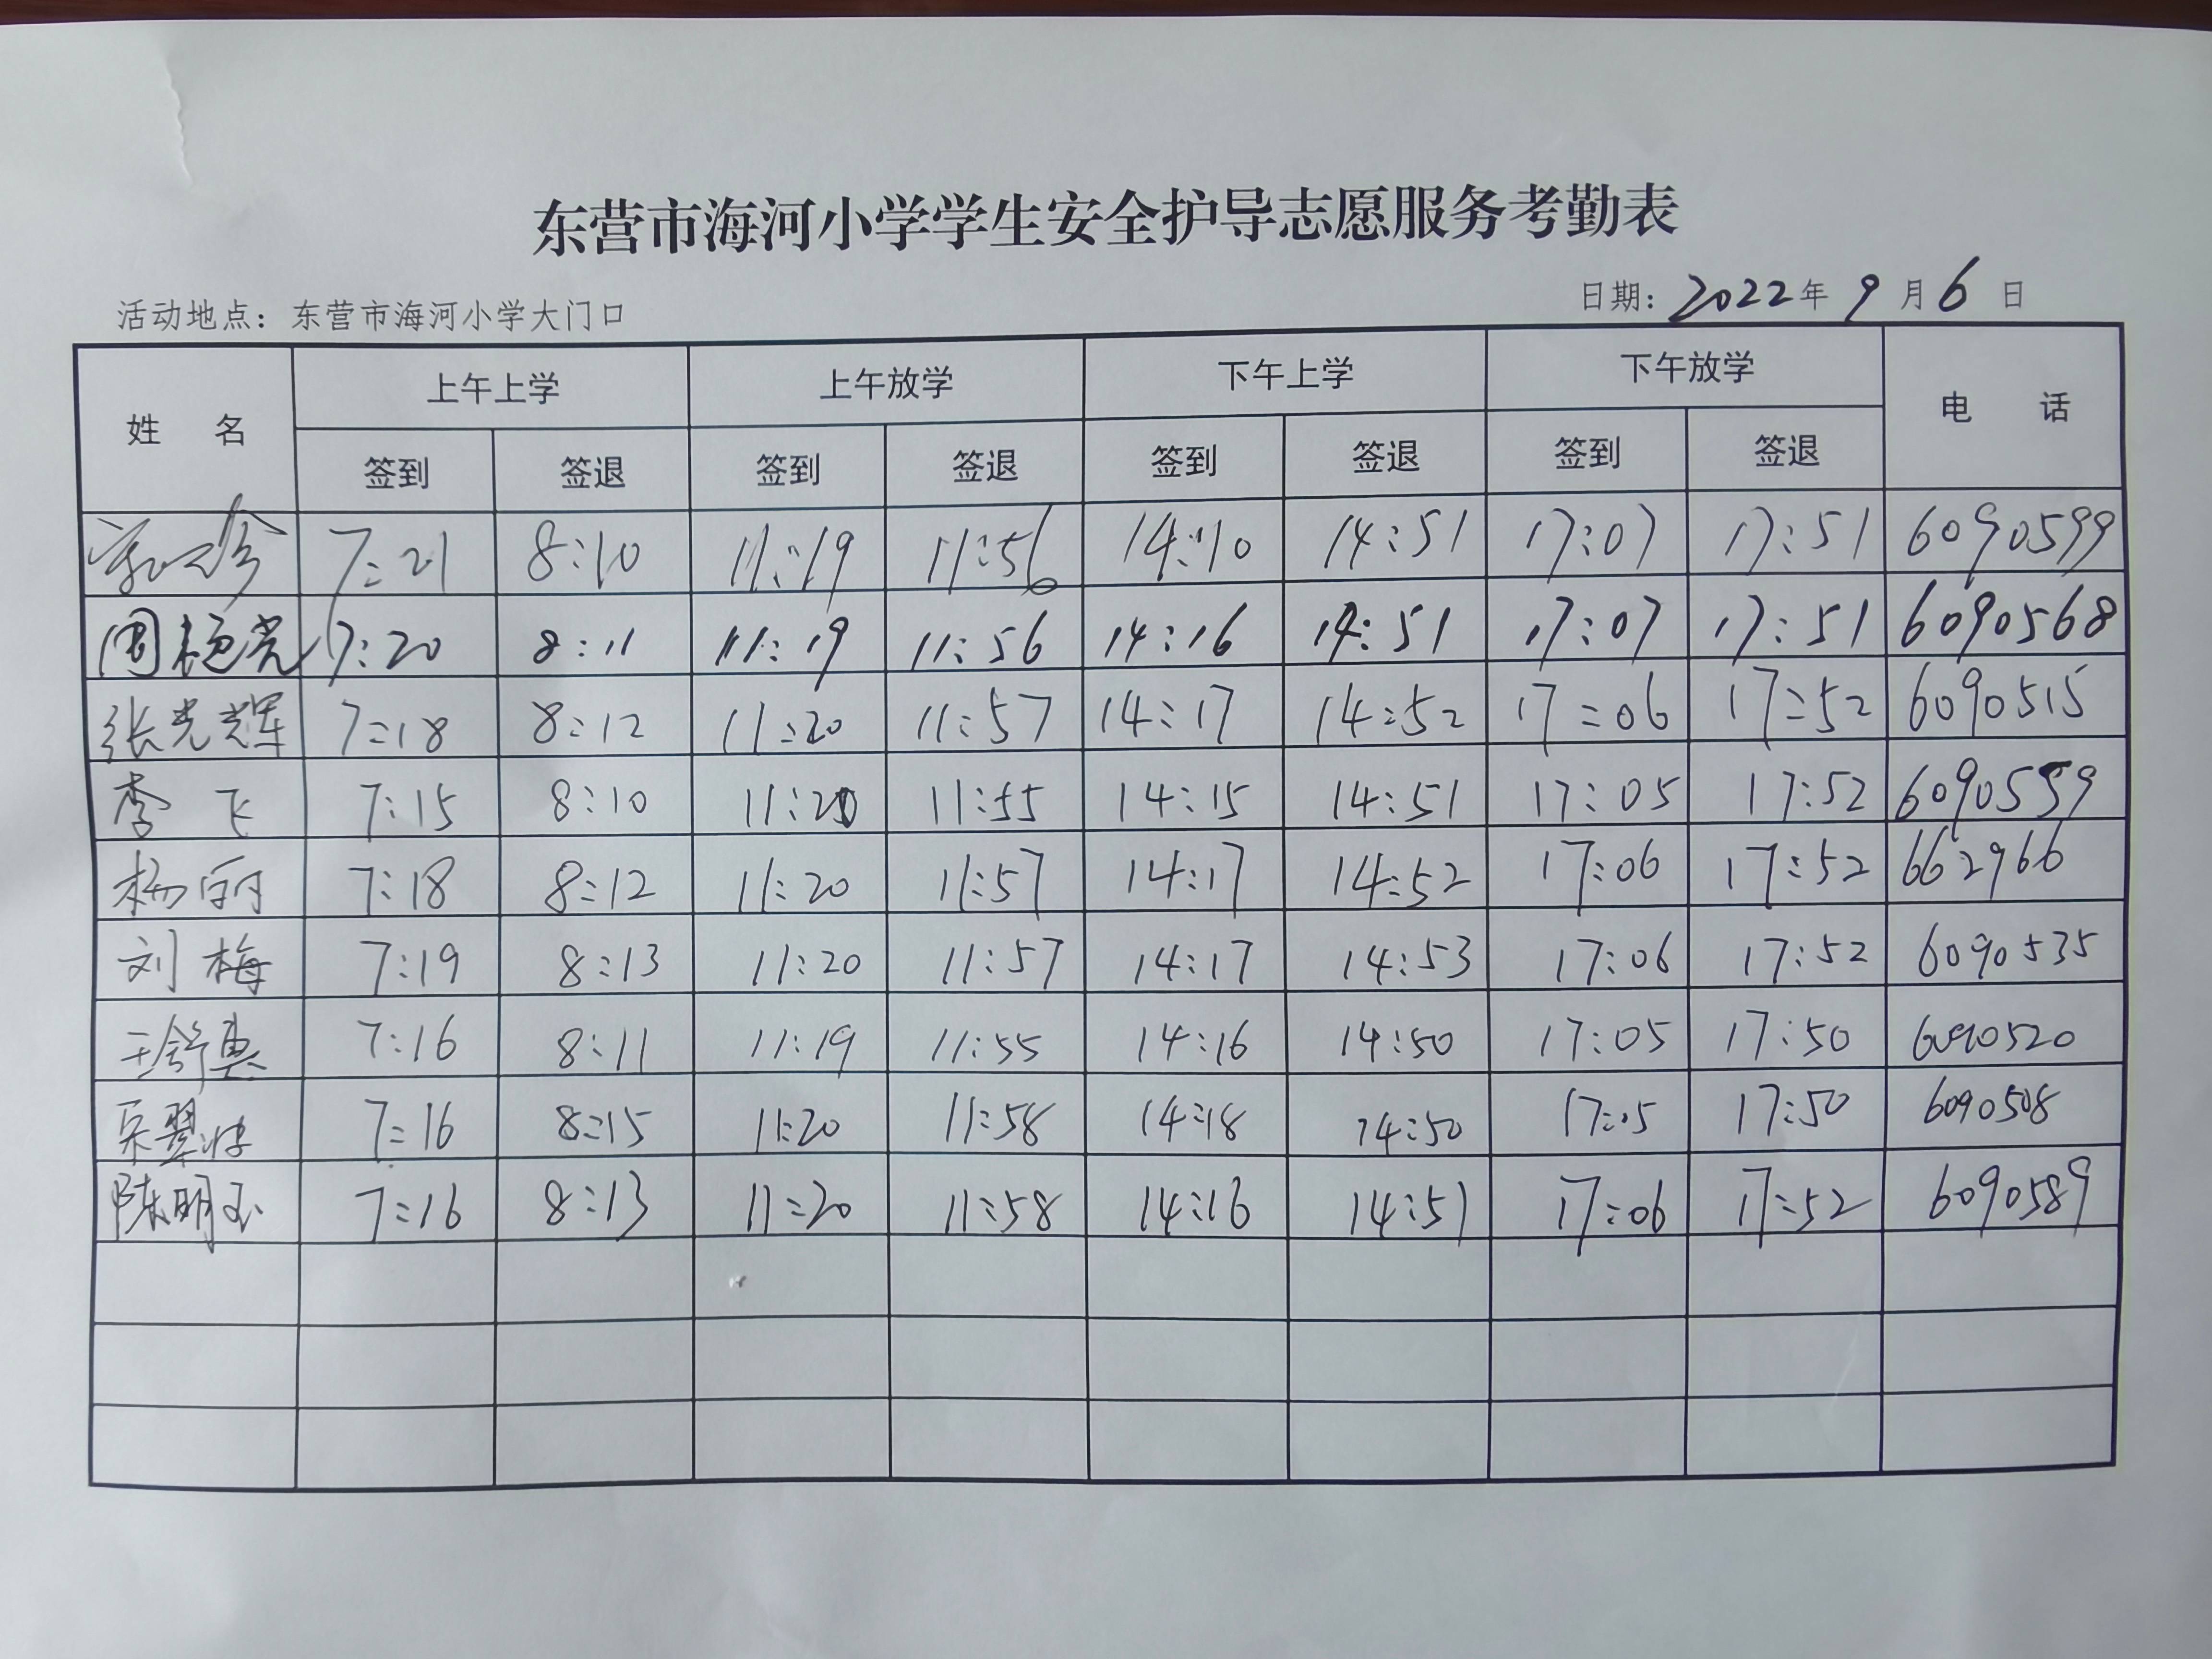 东营市海河小学学生安全护导志愿服务考勤表
活动地点：东营市海河小学大门口 日期：2022年9月6日
姓 名 上午上学 上午放学 下午上学 下午放学 电 话
签到 签退 签到 签退 签到 签退 签到 签退
7:21 8:10 11:19 11:56 14:10 14:51 17:07 17:51 6090599
周艳亮 7:20 8:11 11:19 11:56 14:16 14:51 17:07 17:51 6090568
张光辉 7:18 8:12 11:20 11:57 14:17 14:52 17:06 17:52 6090515
李飞 7:15 8:10 11:20 11:55 14:15 14:51 17:05 17:52 6090559
杨丽 7:18 8:12 11:20 11:57 14:17 14:52 17:06 17:52 662966
刘梅 7:19 8:13 11:20 11:57 14:17 14:53 17:06 17:52 6090535
7:16 8:11 11:19 11:55 14:16 14:50 17:05 17:50 6090520
7:16 8:15 11:20 11:58 14:18 14:50 17:05 17:50 6090508
陈明玉 7:16 8:13 11:20 11:58 14:16 14:51 17:06 17:52 6090589